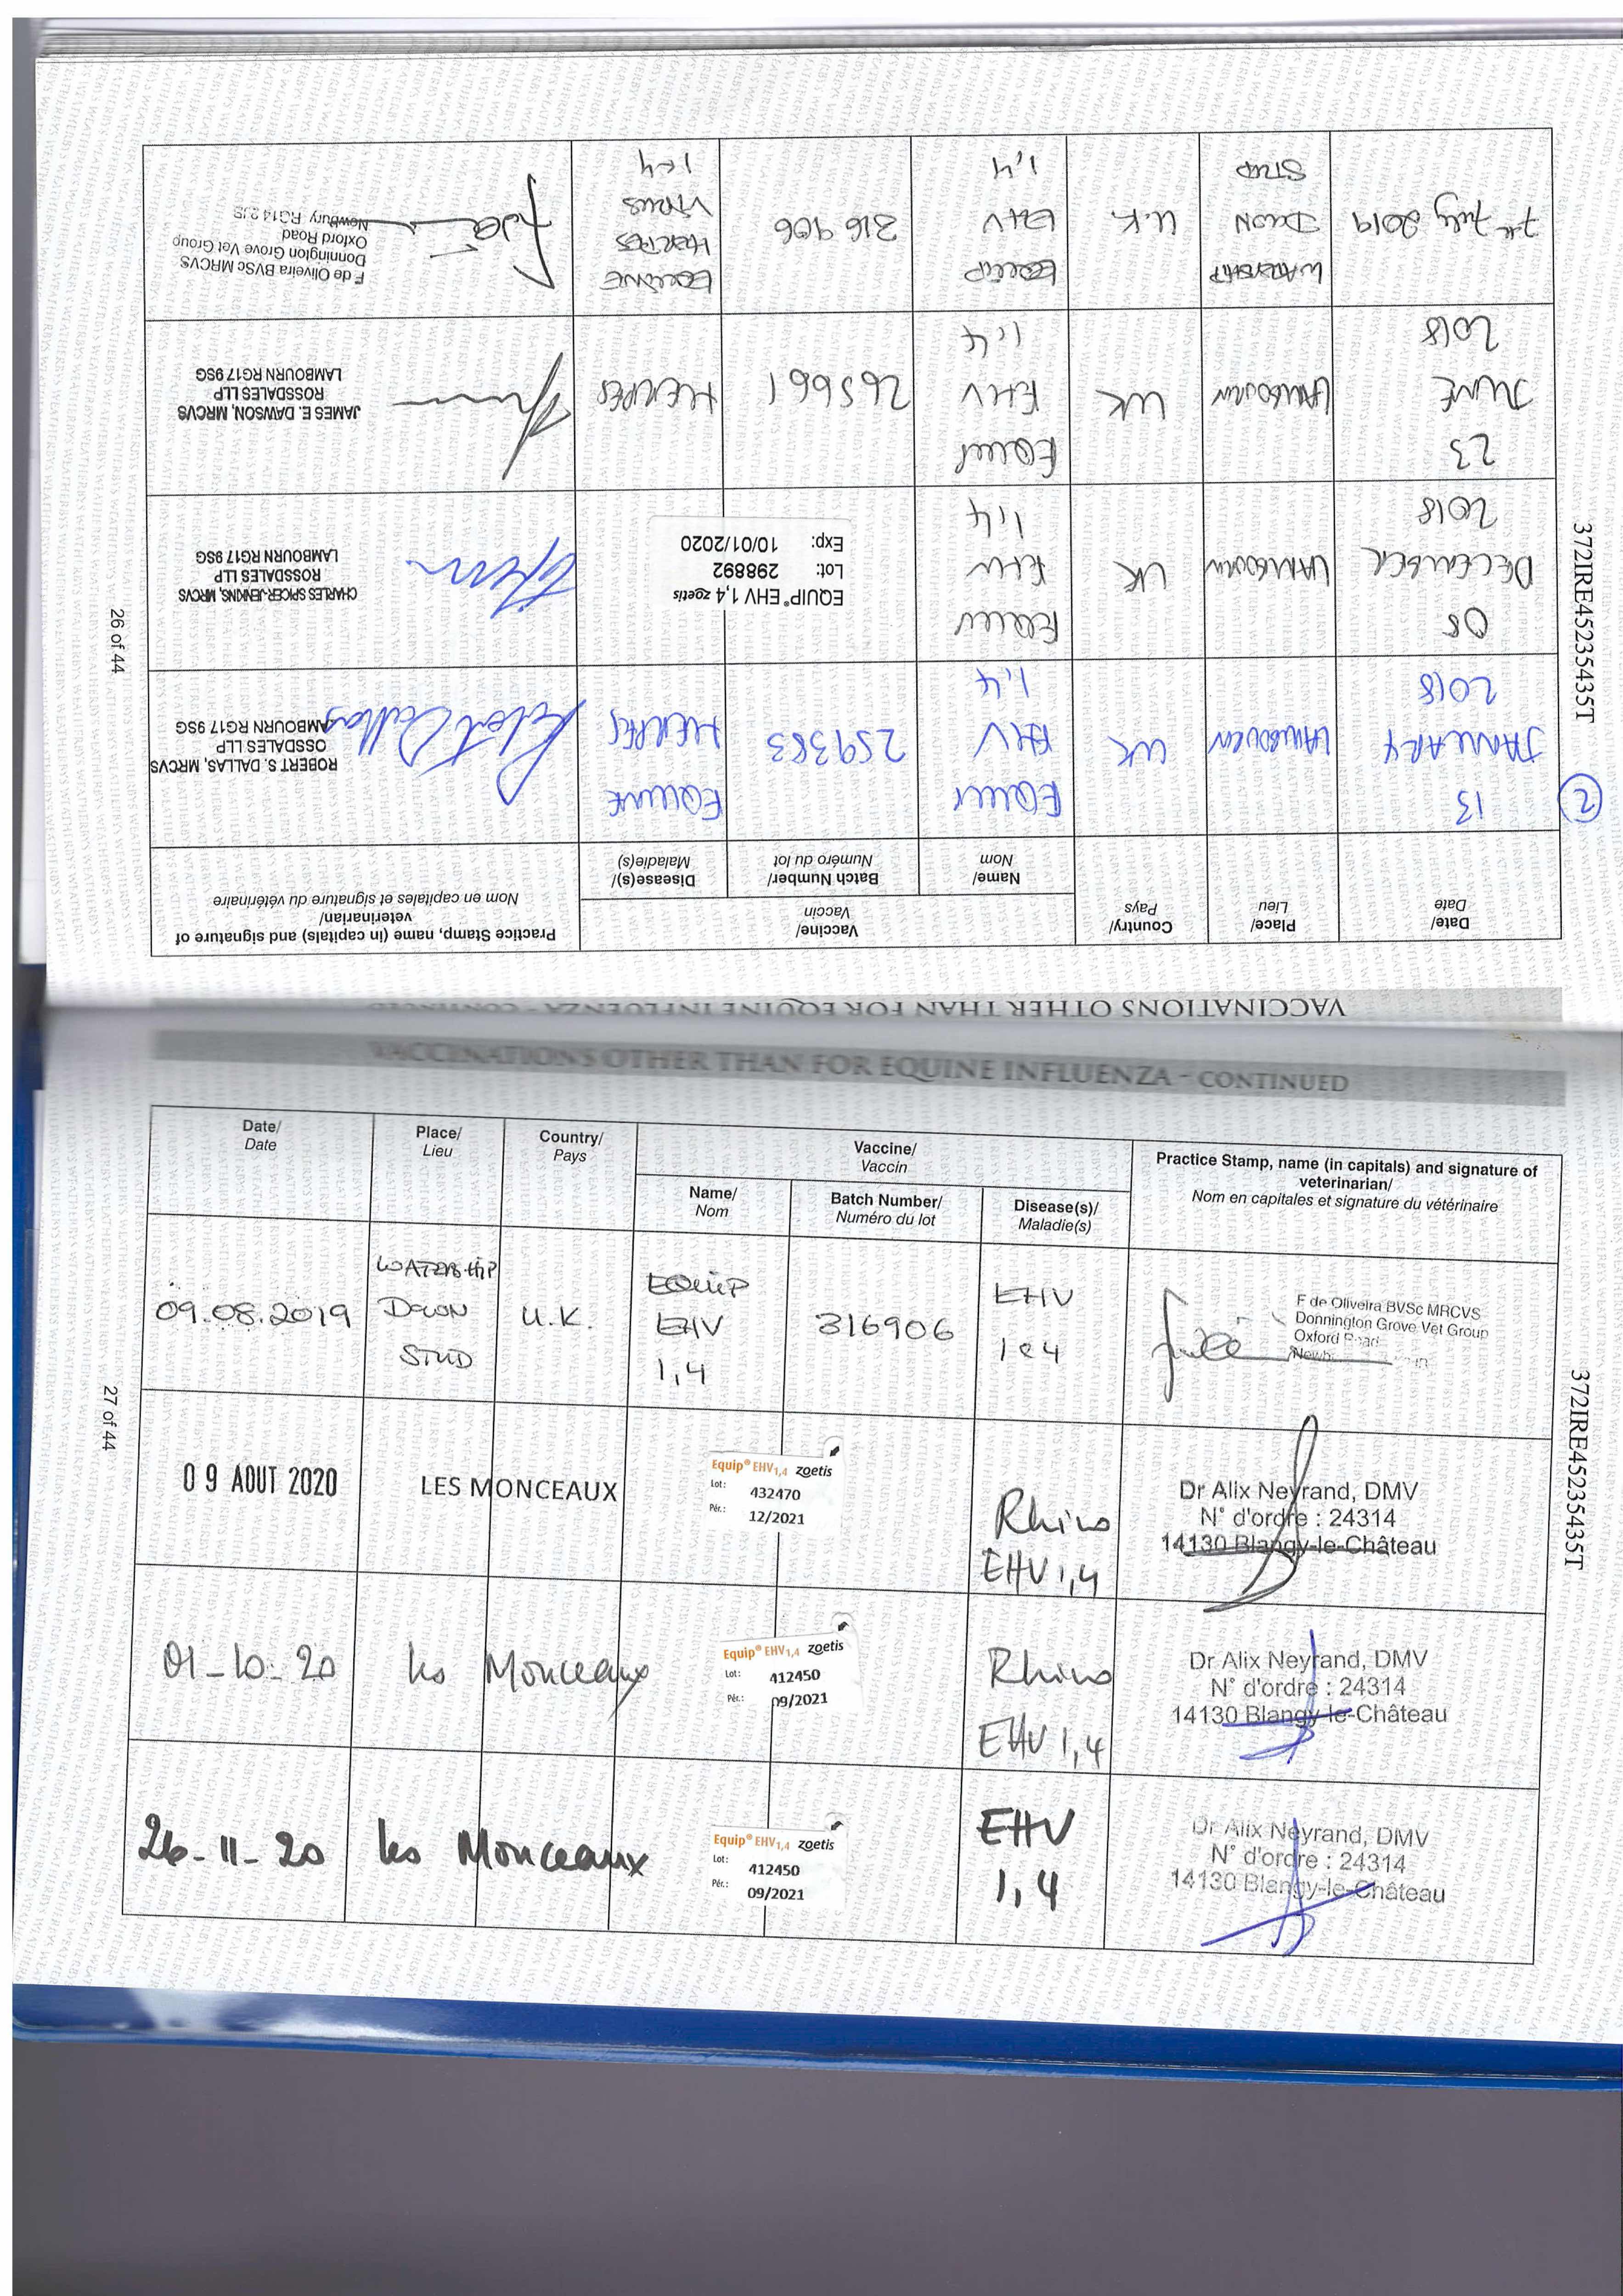 VACCINATIONS OTHER THAN FOR EQUINE INFLUENZA - CONTINUED
Date/
Date
Place/
Lieu
Country/
Pays
Vaccine/
Vaccin
Name/
Nom
Batch Number/
Numéro du lot
Disease(s)/
Maladie(s)
Practice Stamp, name (in capitals) and signature of
veterinarian/
Nom en capitales et signature du vétérinaire
2
13
JANUARY
2018
LAMBOURN
UK
EQUIP
EHV
1,4
259383
EQUINE
HERPES
ROBERT S. DALLAS, MRCVS
OSSDALES LLP
AMBOURN RG17 9SG
Robert Dallas
08
DECEMBER
2018
LAMBOURN
UK
EQUIP
EHV
1,4
EQUIP® EHV 1,4 zoetis
Lot: 298892
Exp: 10/01/2020
CHARLES SPICER-JENKINS, MRCVS
ROSSDALES LLP
LAMBOURN RG17 9SG
23
JUNE
2018
LAMBOURN
UK
EQUIP
EHV
1,4
265661
HERPES
JAMES E. DAWSON, MRCVS
ROSSDALES LLP
LAMBOURN RG17 9SG
7th July 2019
WATERSHIP
DOWN
STUD
U.K
EQUIP
EHV
1,4
316906
EQUINE
HERPES
VIRUS
1-4
F de Oliveira BVSc MRCVS
Donnington Grove Vet Group
Oxford Road
Newbury RG14 2JS
26 of 44
372IRE45235435T
VACCINATIONS OTHER THAN FOR EQUINE INFLUENZA - CONTINUED
Date/
Date
Place/
Lieu
Country/
Pays
Vaccine/
Vaccin
Name/
Nom
Batch Number/
Numéro du lot
Disease(s)/
Maladie(s)
Practice Stamp, name (in capitals) and signature of
veterinarian/
Nom en capitales et signature du vétérinaire
09.08.2019
WATERSHIP
DOWN
STUD
U.K.
EQUIP
EHV
1,4
316906
EHV
1e4
F de Oliveira BVSc MRCVS
Donnington Grove Vet Group
Oxford Road
09 AOUT 2020
LES MONCEAUX
Equip® EHV1,4 zoetis
Lot: 432470
Pér.: 12/2021
Rhino
EHV 1,4
Dr Alix Neyrand, DMV
N° d'ordre : 24314
14130 Blangy-le-Château
01-10-20
les Monceaux
Equip® EHV1,4 zoetis
Lot: 412450
Pér.: 09/2021
Rhino
EHV 1,4
Dr Alix Neyrand, DMV
N° d'ordre : 24314
14130 Blangy-le-Château
26-11-20
les Monceaux
Equip® EHV1,4 zoetis
Lot: 412450
Pér.: 09/2021
EHV
1,4
Dr Alix Neyrand, DMV
N° d'ordre : 24314
14130 Blangy-le-Château
27 of 44
372IRE45235435T